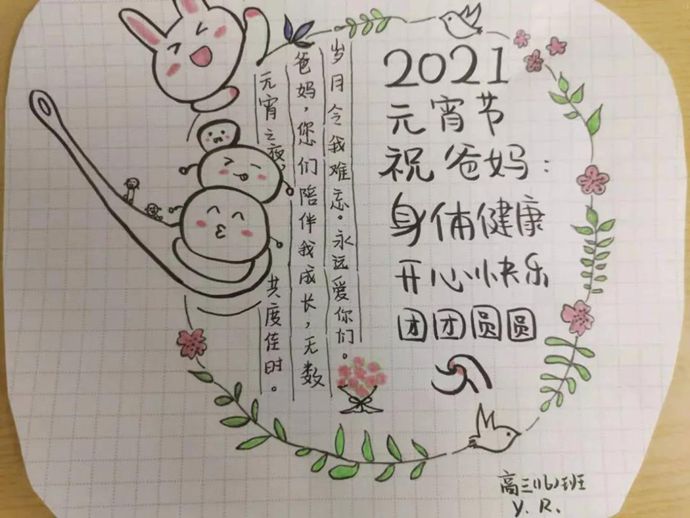 元宵之夜，共度佳时。
爸妈，您们陪伴我成长，无数
岁月令我难忘。永远爱你们。
2021
元宵节
祝爸妈：
身体健康
开心快乐
团团圆圆
高三(16)班
Y. R.